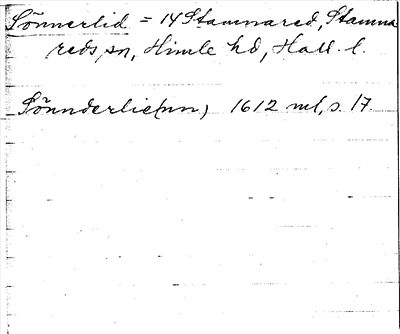 Sönnerlid = 14 Stamnared, Stamna
reds sn, Himle hd, Hall. l.
Sönnderlie(nn) 1612 ml, s. 17.